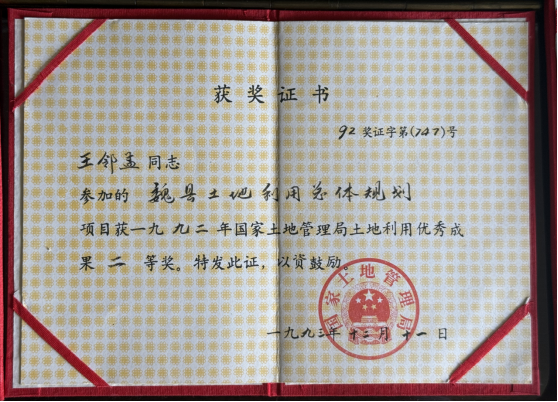 获奖证书
92奖证字第(747)号
王邻孟同志
参加的 魏县土地利用总体规划
项目获一九九二年国家土地管理局土地利用优秀成
果二等奖。特发此证，以资鼓励。
国家土地管理局
一九九三年十二月十一日